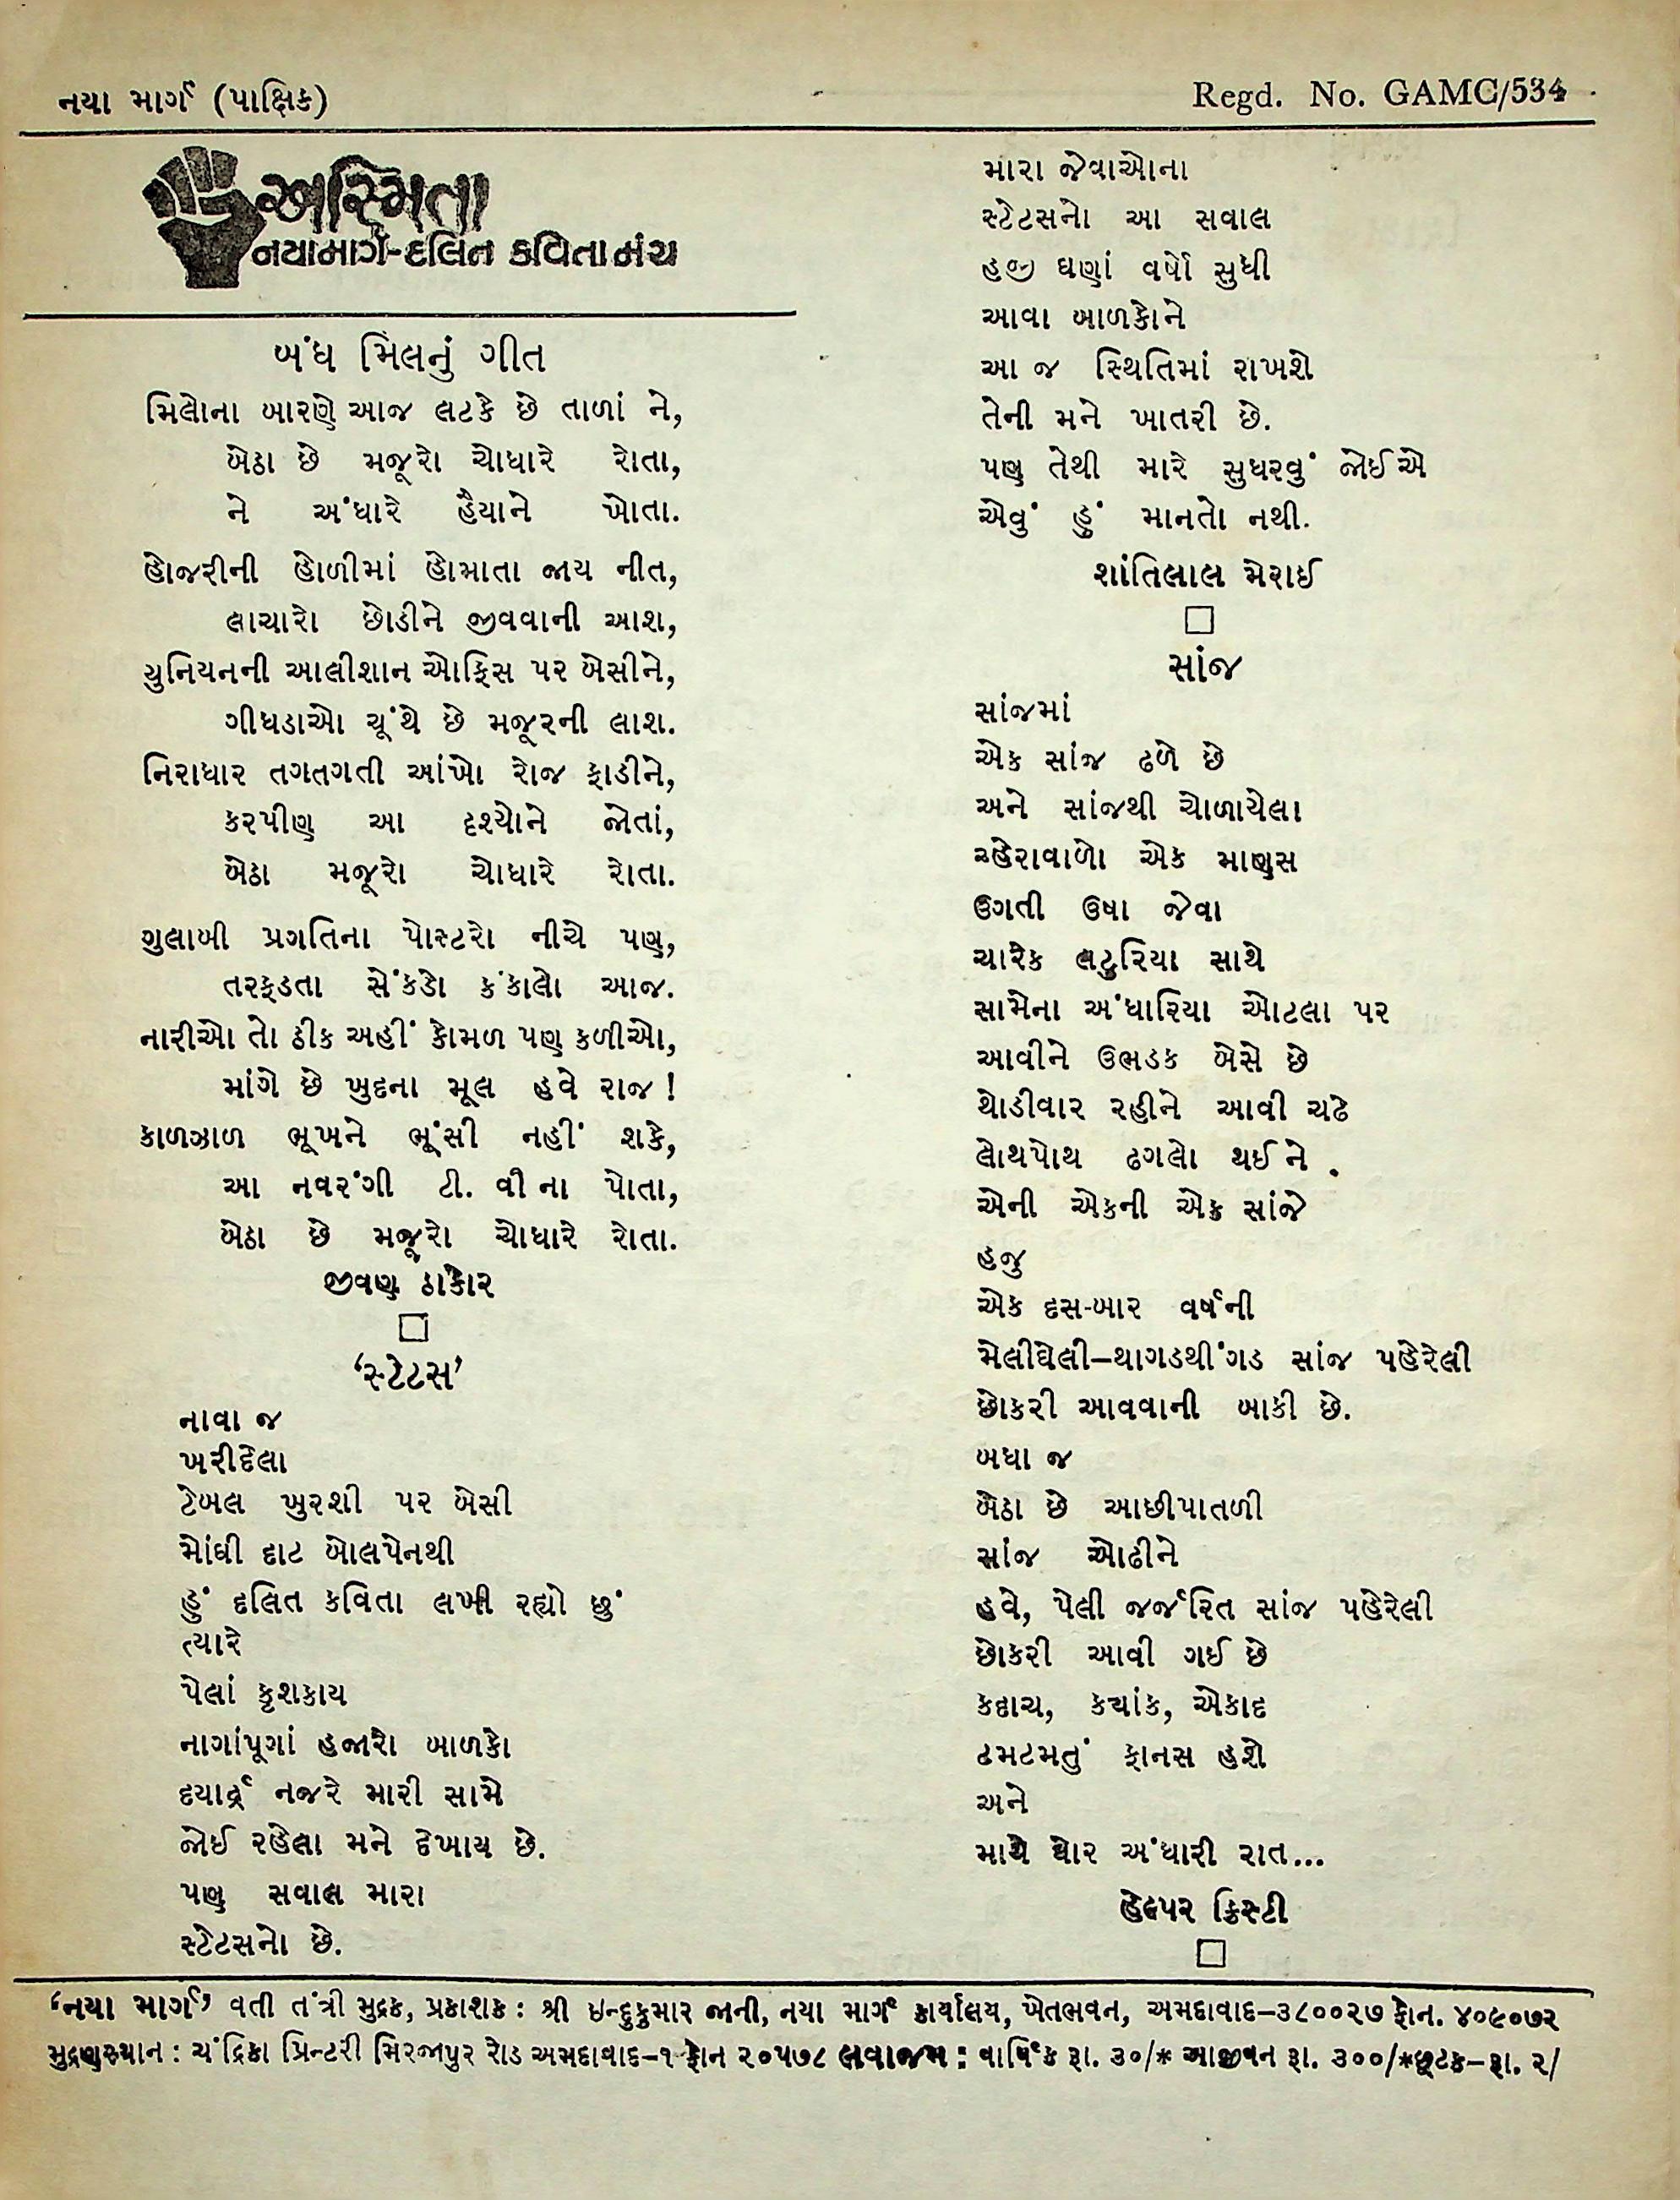 નયા માર્ગ (પાક્ષિક)
Regd. No. GAMC/534
અસ્મિતા
નયામાર્ગ-દલિત કવિતા મંચ
બંધ મિલનું ગીત
મિલોના બારણે આજ લટકે છે તાળાં ને,
બેઠા છે મજૂરો ચોધારે રોતા,
ને અંધારે હૈયાને ખોતા.
હોજરીની હોળીમાં હોમાતા જાય નીત,
લાચારો છોડીને જીવવાની આશ,
યુનિયનની આલીશાન ઓફિસ પર બેસીને,
ગીધડાઓ ચૂંથે છે મજૂરની લાશ.
નિરાધાર તગતગતી આંખો રોજ ફાડીને,
કરપીણ આ દૃશ્યોને જોતાં,
બેઠા મજૂરો ચોધારે રોતા.
ગુલાબી પ્રગતિના પોસ્ટરો નીચે પણ,
તરફડતા સેંકડો કંકાલો આજ.
નારીઓ તો ઠીક અહીં કોમળ પણ કળીઓ,
માંગે છે ખુદના મૂલ હવે રાજ !
કાળઝાળ ભૂખને ભૂંસી નહીં શકે,
આ નવરંગી ટી. વી ના પોતા,
બેઠા છે મજૂરો ચોધારે રોતા.
જીવણ ઠાકોર
‘સ્ટેટસ’
નાવા જ
ખરીદેલા
ટેબલ ખુરશી પર બેસી
મોંઘી દાટ બોલપેનથી
હું દલિત કવિતા લખી રહ્યો છું
ત્યારે
પેલાં કૃશકાય
નાગાંપૂગાં હજારો બાળકો
દયાર્દ્ર નજરે મારી સામે
જોઈ રહેલા મને દેખાય છે.
પણ સવાલ મારા
સ્ટેટસનો છે.
મારા જેવાઓના
સ્ટેટસનો આ સવાલ
હજી ઘણાં વર્ષો સુધી
આવા બાળકોને
આ જ સ્થિતિમાં રાખશે
તેની મને ખાતરી છે.
પણ તેથી મારે સુધરવું જોઈએ
એવું હું માનતો નથી.
શાંતિલાલ મેરાઈ
સાંજ
સાંજમાં
એક સાંજ ઢળે છે
અને સાંજથી ચોળાયેલા
ચ્હેરાવાળો એક માણસ
ઉગતી ઉષા જેવા
ચારેક લટુરિયા સાથે
સામેના અંધારિયા ઓટલા પર
આવીને ઉભડક બેસે છે
થોડીવાર રહીને આવી ચઢે
લોથપોથ ઢગલો થઈને .
એની એકની એક સાંજે
હજુ
એક દસ-બાર વર્ષની
મેલીઘેલી–થાગડથીંગડ સાંજ પહેરેલી
છોકરી આવવાની બાકી છે.
બધા જ
બેઠા છે આછીપાતળી
સાંજ ઓઢીને
હવે, પેલી જર્જરિત સાંજ પહેરેલી
છોકરી આવી ગઈ છે
કદાચ, ક્યાંક, એકાદ
ટમટમતું ફાનસ હશે
અને
માથે ઘોર અંધારી રાત...
હેલ્પર ક્રિસ્ટી
‘નયા માર્ગ’ વતી તંત્રી મુદ્રક, પ્રકાશક : શ્રી ઇન્દુકુમાર જાની, નયા માર્ગ કાર્યાલય, ખેતભવન, અમદાવાદ–૩૮૦૦૨૭ ફોન. ૪૦૯૦૭૨
મુદ્રણસ્થાન : ચંદ્રિકા પ્રિન્ટરી મિરજાપુર રોડ અમદાવાદ–૧ ફોન ૨૦૫૭૮ લવાજમ : વાર્ષિક રૂા. ૩૦/* આજીવન રૂા. ૩૦૦/*છૂટક–રૂા. ૨/